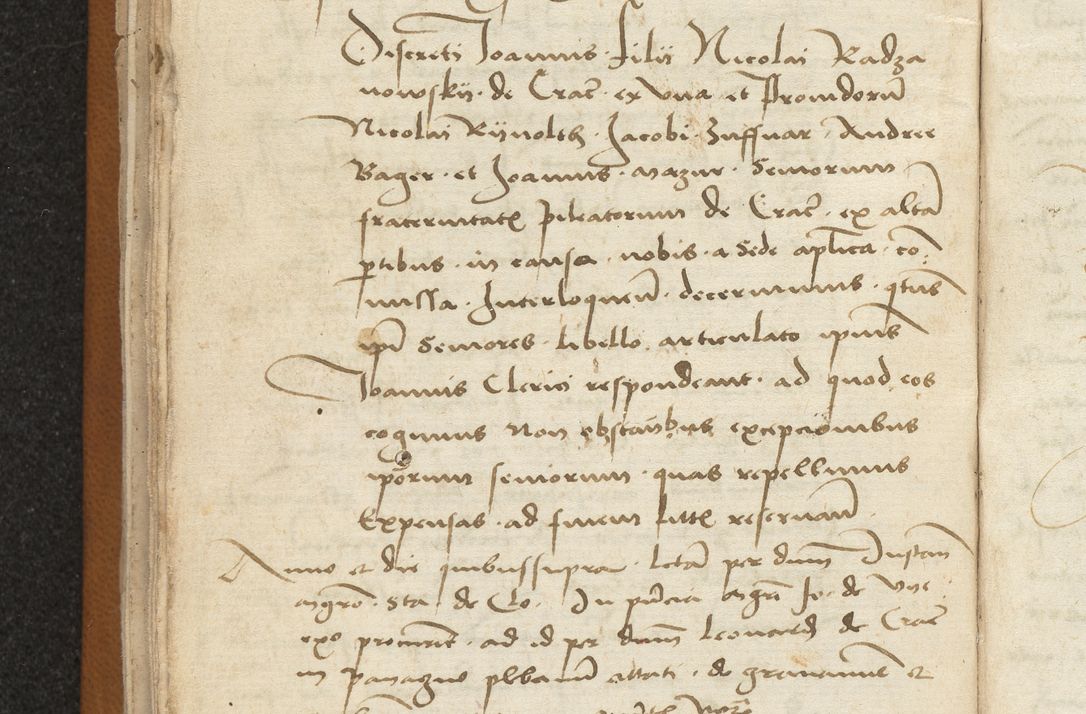 Discreti Joannis filii Nicolai Radza
nowskij de Crac ex vna et Prouidorũ
Nicolai Rÿnolth Jacobi Zuffnar Andree
Bager et Joannis mazur Seniorum
fraternitatis pileatorum de Crac ex altã
ptibus in causa nobis a Sede aplica cõ
missa Interloquendũ decernimus qtus
ipi Seniores libello articulato ipius
Joannis Clerici respondeant ad quod eos
cogimus Non obstantibus excepcionibus
iporum seniorum quas repellimus
Expensas ad finem littis reseruam
Anno et die quibussupra lecta per dnum Instan
mgro Sta de Clo In pntia mgri Jo de
procurat ad id per dnum Leonard de Crac
in plbanum de grauamine et